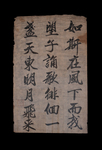 如斯在風下而我
望子誦歌徘徊一
盞天東明月飛來